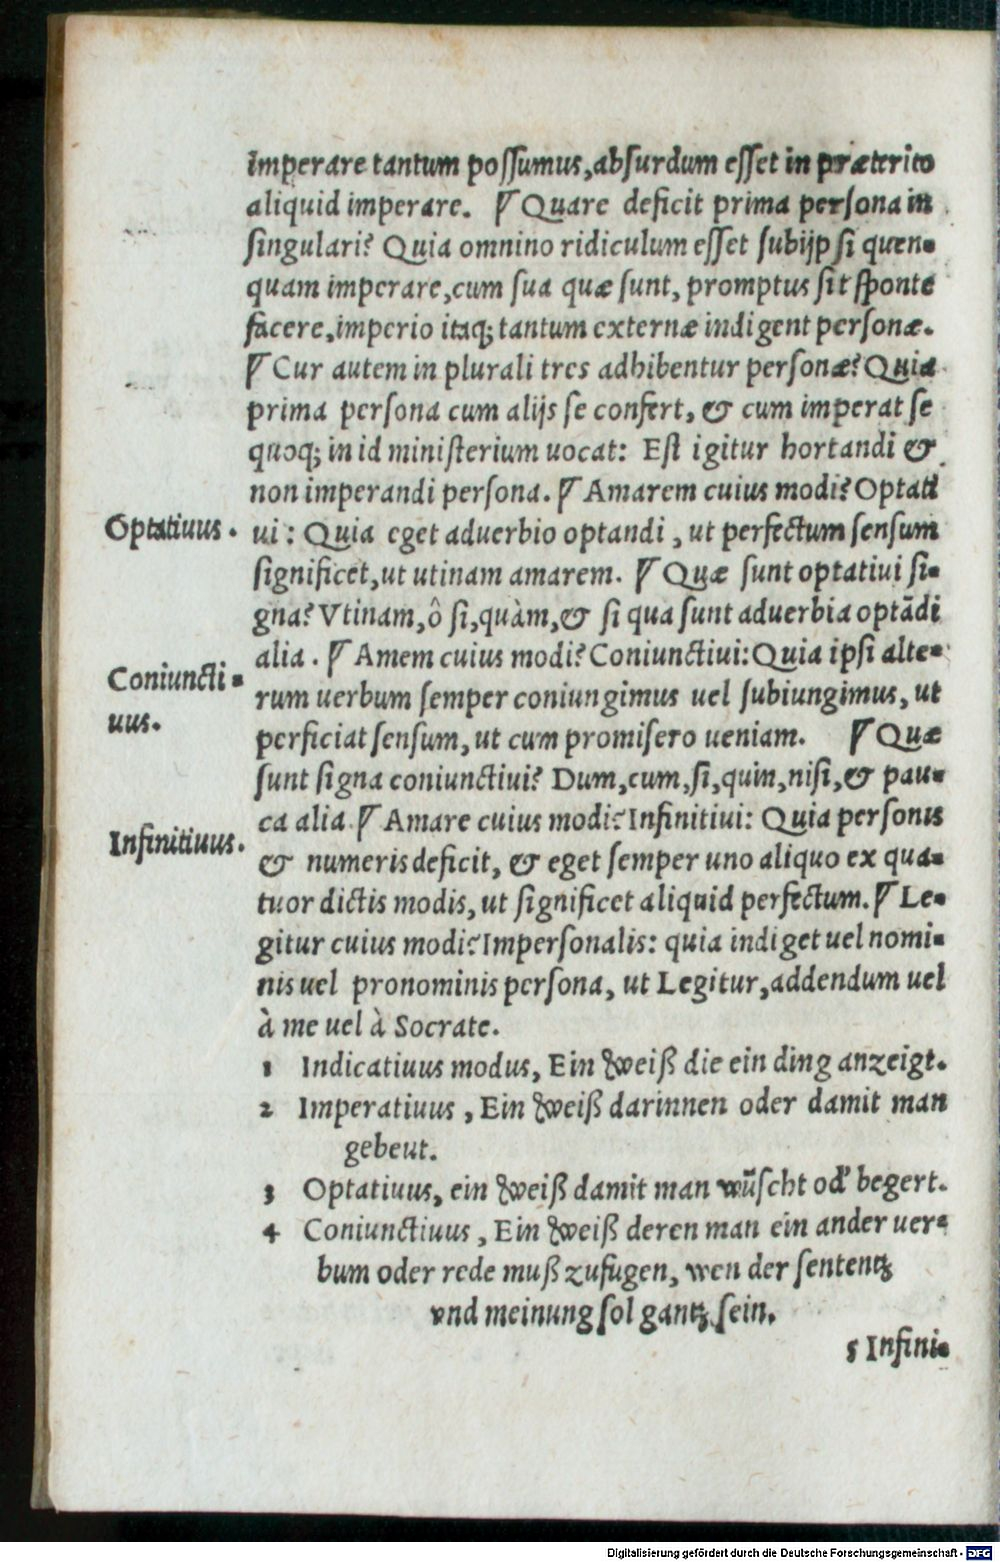 imperare tantum possumus, absurdum esset in præterito
aliquid imperare. ¶ Quare deficit prima persona in
singulari? Quia omnino ridiculum esset subijpsi quen-
quam imperare, cum sua quæ sunt, promptus sit sponte
facere, imperio itaq; tantum externæ indigent personæ.
¶ Cur autem in plurali tres adhibentur personæ? Quia
prima persona cum alijs se confert, & cum imperat se
quoq; in id ministerium uocat: Est igitur hortandi &
non imperandi persona. ¶ Amarem cuius modi? Optati
Optatiuus.
ui: Quia eget aduerbio optandi, ut perfectum sensum
significet, ut utinam amarem. ¶ Quæ sunt optatiui si-
gna? Vtinam, ô si, quàm, & si qua sunt aduerbia optādi
alia. ¶ Amem cuius modi? Coniunctiui: Quia ipsi alte-
Coniuncti-
uus.
rum uerbum semper coniungimus uel subiungimus, ut
perficiat sensum, ut cum promisero ueniam. ¶ Quæ
sunt signa coniunctiui? Dum, cum, si, quin, nisi, & pau-
ca alia ¶ Amare cuius modi? Infinitiui: Quia personis
Infinitiuus.
& numeris deficit, & eget semper uno aliquo ex qua-
tuor dictis modis, ut significet aliquid perfectum. ¶ Le-
gitur cuius modi? Impersonalis: quia indiget uel nomi-
nis uel pronominis persona, ut Legitur, addendum uel
à me uel à Socrate.
1 Indicatiuus modus, Ein Weiß die ein ding anzeigt.
2 Imperatiuus, Ein Weiß darinnen oder damit man
gebeut.
3 Optatiuus, ein Weiß damit man wũscht od' begert.
4 Coniunctiuus, Ein Weiß deren man ein ander uer-
bum oder rede muß zufugen, wen der sententz
vnd meinung sol gantz sein.
5 Infini-
Digitalisierung gefördert durch die Deutsche Forschungsgemeinschaft - DFG